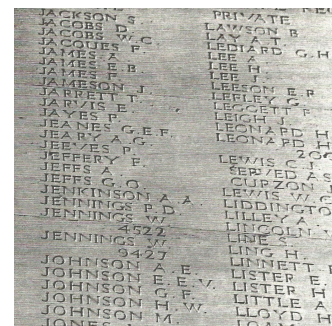 JACKSON S.
JACOBS D.
JACOBS W.C.
JACQUES F.
JAMES A.
JAMES E.B.
JAMES F.
JAMESON J.
JARRETT T.
JARVIS E.
JAYES P.
JEANES G.E.F.
JEARY A.G.
JEEVES P.
JEFFERY F.
JEFFS A.
JEFFS G.O.
JENKINSON A.A.
JENNINGS P.D.
JENNINGS W.
4522
JENNINGS W.
9427
JOHNSON A.E.
JOHNSON E.E.V.
JOHNSON G.F.
JOHNSON H.W.
JOHNSON M.
JONES
PRIVATE
LAWSON B.
LAY A.T.
LEDIARD G.H
LEE A.
LEE H.
LEE J.
LEESON E.R.
LEFLEY G.
LEGGETT F.
LEIGH J.
LEONARD H
LEONARD H
LEWIS C.
SERVED AS
CURZON
LEWIS W.
LIDDINGTO
LILLEY A
LINCOLN
LINE S.
LING H.
LINNETT
LISTER E.
LISTER H
LITTLE A
LLOYD H